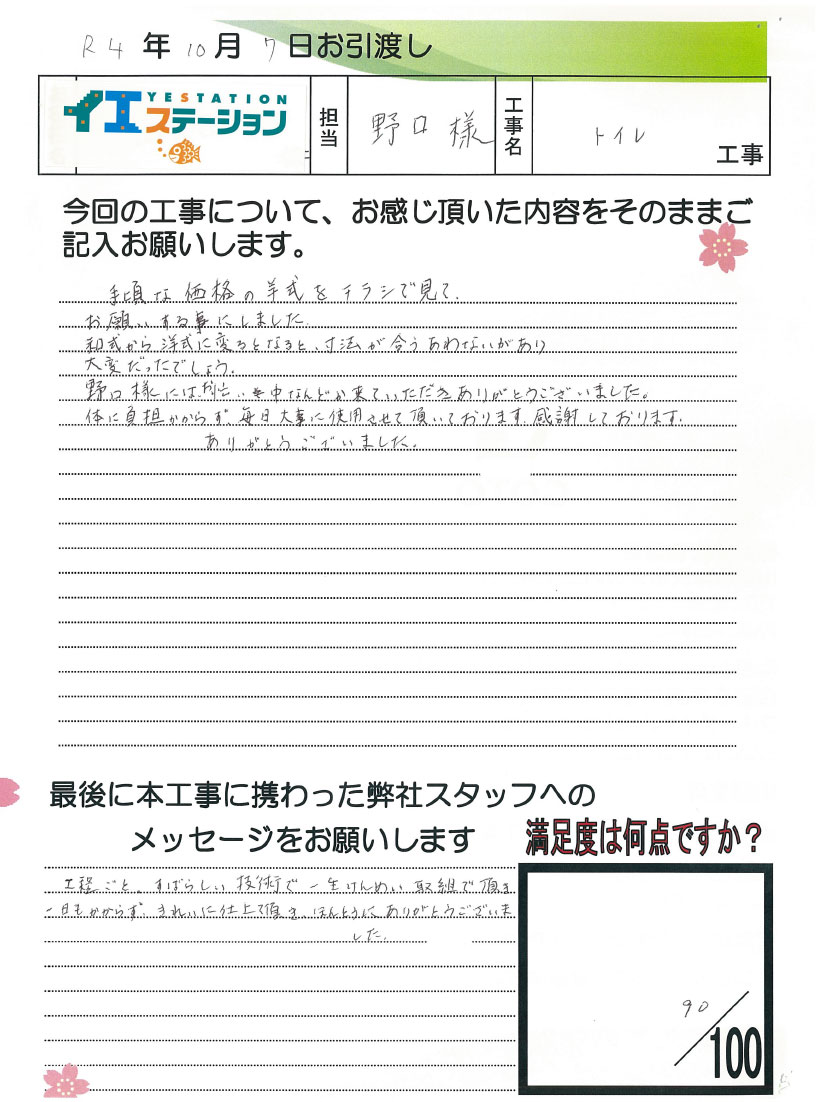 R4年10月7日お引渡し
YESTATION
イエステーション
担当
野口様
工事名
トイレ
工事
今回の工事について、お感じ頂いた内容をそのままご
記入お願いします。
手頃な価格の洋式をチラシで見て、
お願いする事にしました
和式から洋式に変るとなると、寸法が合うあわないがあり
大変だったでしょう。
野口様にはお忙しい中なんどか来ていただきありがとうございました。
体に負担かからず、毎日大事に使用させて頂いております。感謝しております。
ありがとうございました。
最後に本工事に携わった弊社スタッフへの
メッセージをお願いします
工程ごと、すばらしい技術で一生けんめい取組で頂き
一日もかからず、きれいに仕上て頂き、ほんとうにありがとうございま
した。
満足度は何点ですか？
90/100